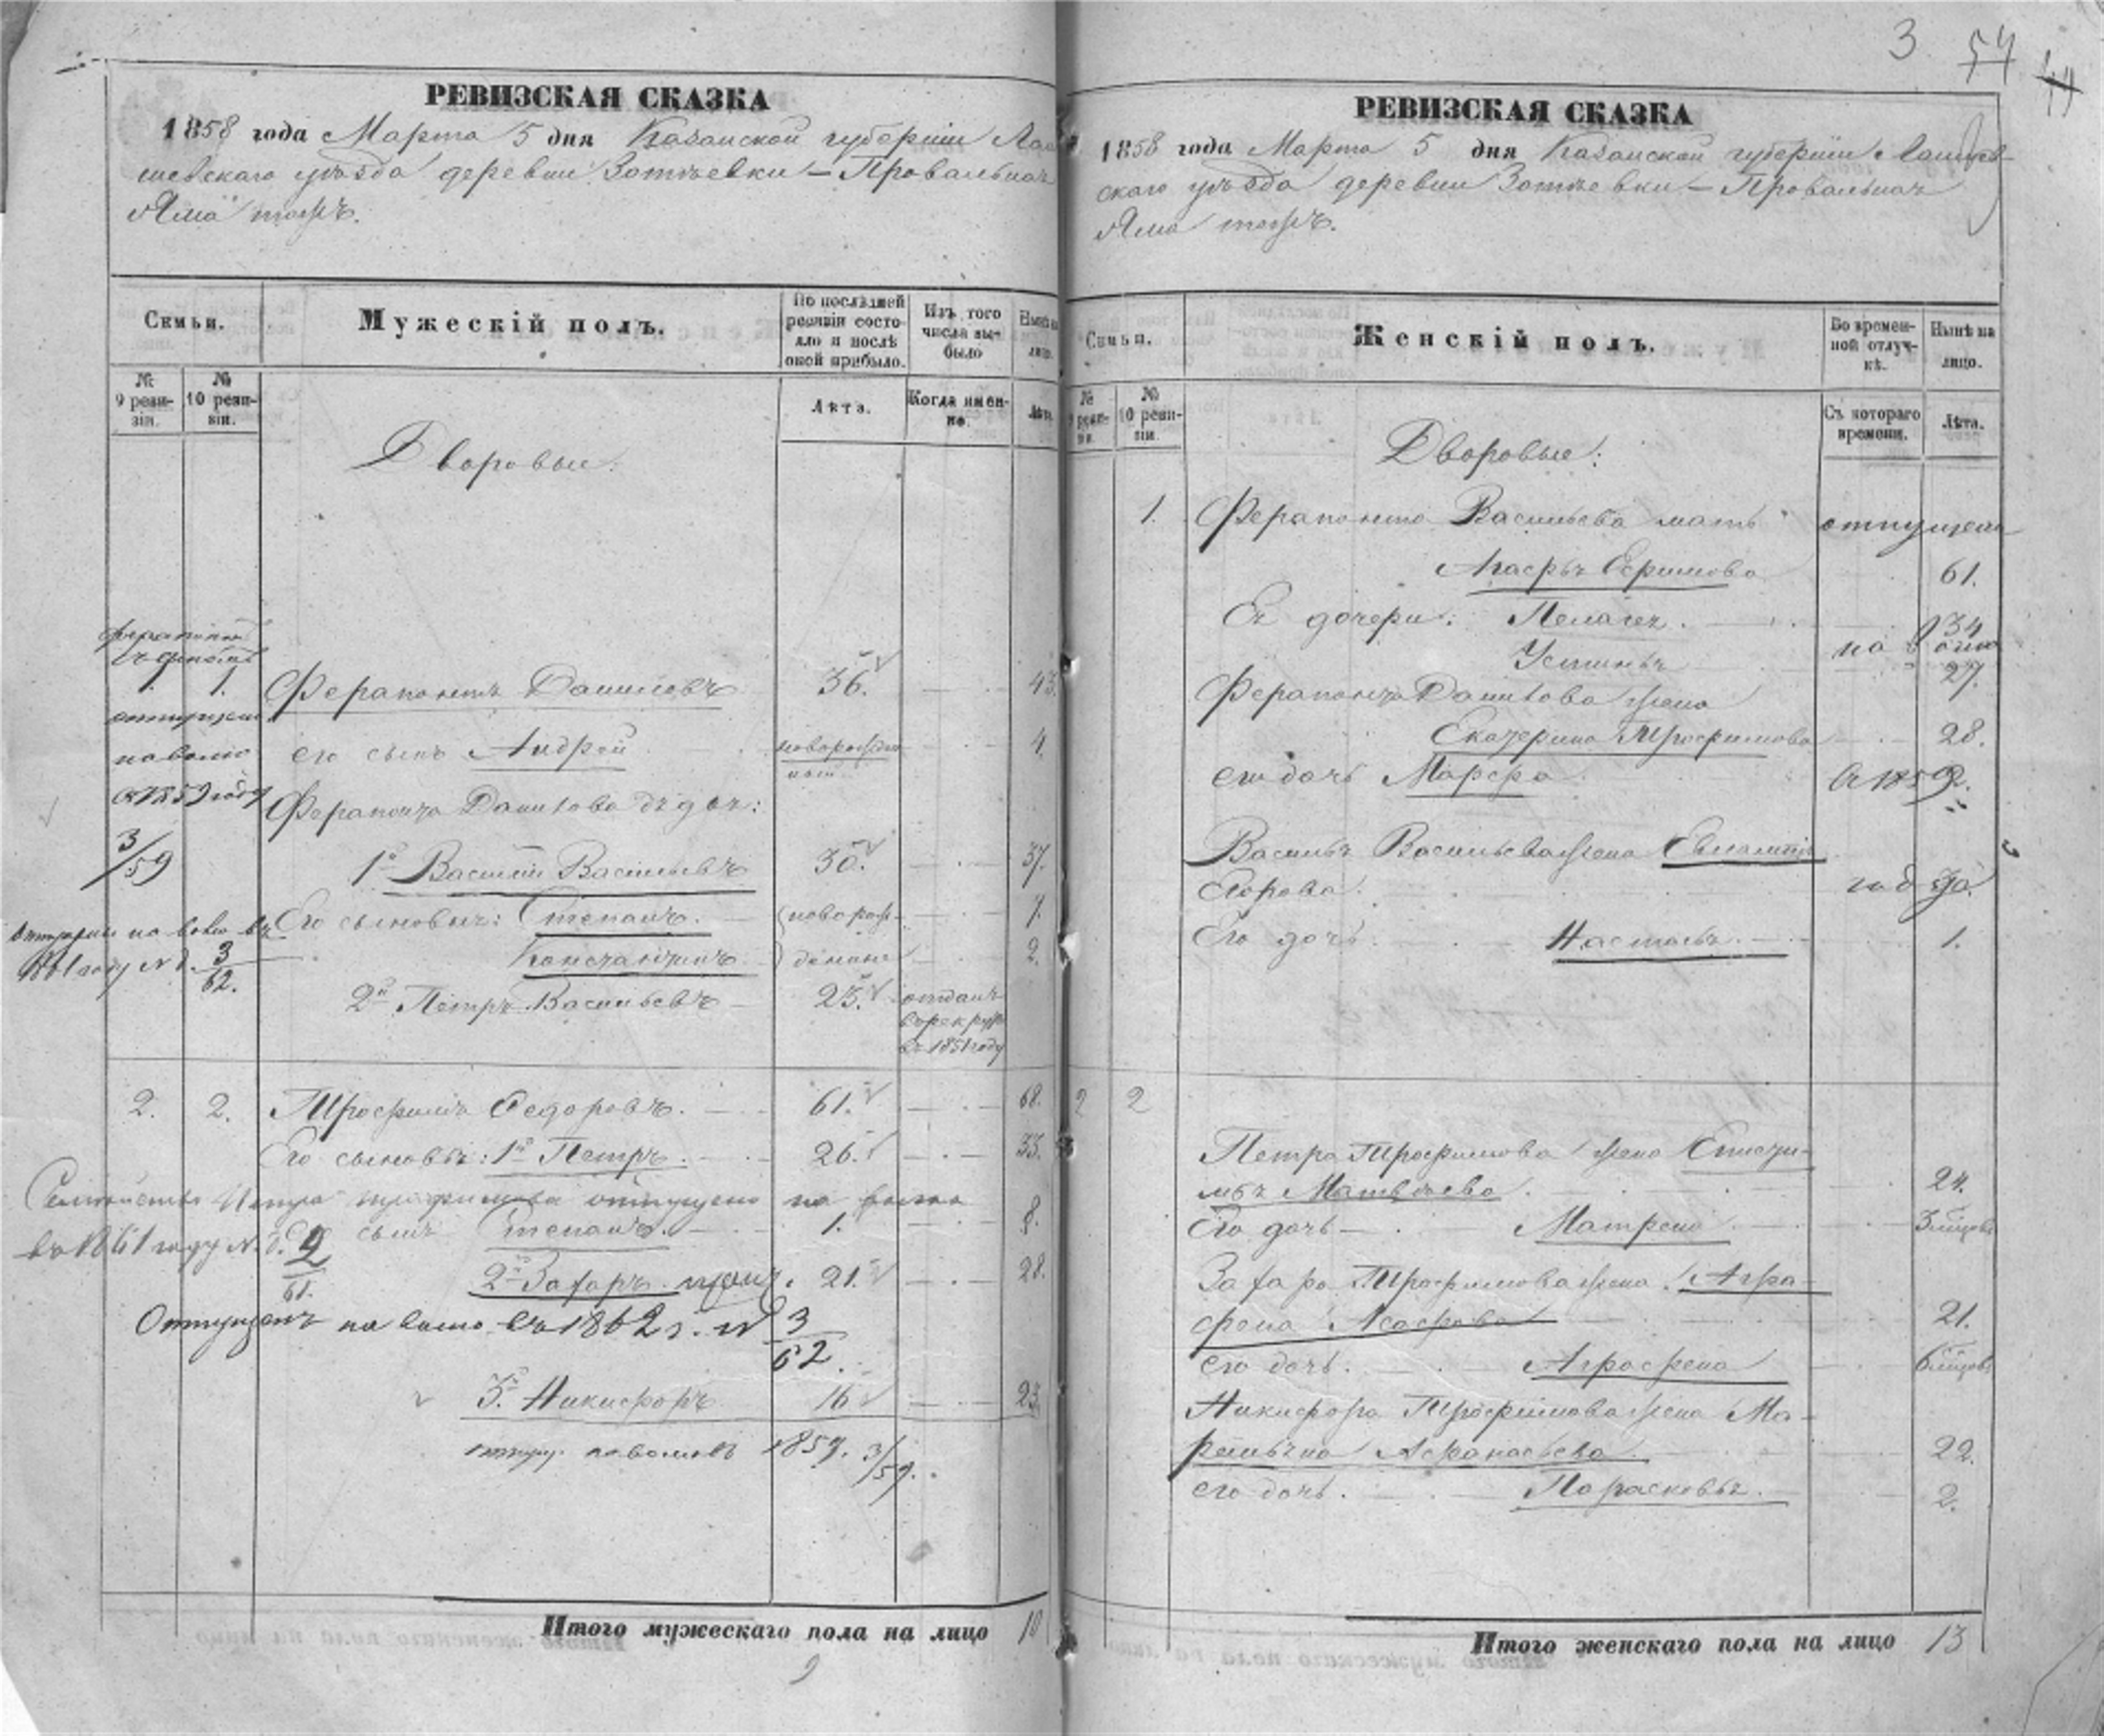 3 54
РЕВИЗСКАЯ СКАЗКА
1858 года Марта 5 дня Казанской губернiи Лаи
шевскаго уѣзда деревни Зотѣевки — Провальная
Яма тожъ.
Семьи.
Мужескій полъ.
По послѣдней ревизіи состояло и послѣ оной прибыло.
Изъ того числа выбыло
Нынѣ на лицо.
№ 9 ревизіи.
№ 10 ревизіи.
Лѣта.
Когда именно.
Лѣта.
Дворовые:
1. Ферапонтъ Даниловъ 36. 43.
отпущены
на волю
въ 1859 году
3/59
его сынъ Андрей новорожден
ный 4.
Ферапонта Данилова дядья:
1й Василій Васильевъ 30. 37.
Его сыновья: Степанъ. новорож- 7.
Константинъ денные 2.
отпущены на волю въ
1861 году № 3/62.
2й Петръ Васильевъ 23. отданъ
въ рекруты
въ 1851 году
2. 2. Трофимъ Федоровъ. 61. 68.
Его сыновья: 1й Петръ. 26. 33.
Семейство Петра Трофимова отпущено на волю
въ 1861 году №
сынъ Степанъ. 1. 8.
2й Захаръ 21. 28.
Отпущенъ на волю въ 1862 г. № 3/62.
3й Никифоръ 16 23.
отпу. на волю въ 1859. 3/59.
Итого мужескаго пола на лицо 10
9
РЕВИЗСКАЯ СКАЗКА
1858 года Марта 5 дня Казанской губернiи Лаишев
скаго уѣзда деревни Зотѣевки — Провальная
Яма тожъ.
Семьи.
Женскій полъ.
Во временной отлучкѣ.
Нынѣ на лицо.
№ 9 ревизіи.
№ 10 ревизіи.
Съ котораго времени.
Лѣта.
Дворовые:
1. Ферапонта Васильева мать отпущены
Агафья Ефимова 61.
Ея дочери: Пелагея. 34
Устинья на волю 27.
Ферапонта Данилова жена
Екатерина Трофимова 28.
его дочь Марфа 2.
въ 1859
Василья Васильева жена Евлампія
Егорова. году 30.
Его дочь Настасья. 1.
2 2
Петра Трофимова жена Епистимья
Матвѣева. 24.
Его дочь — Матрена 3 мѣсяцовъ
Захара Трофимова жена Агра-
фена 21.
его дочь. Аграфена 6 мѣсяцовъ
Никифора Трофимова жена Ма-
ремьяна Афанасьева. 22.
его дочь. Парасковья. 2.
Итого женскаго пола на лицо 13